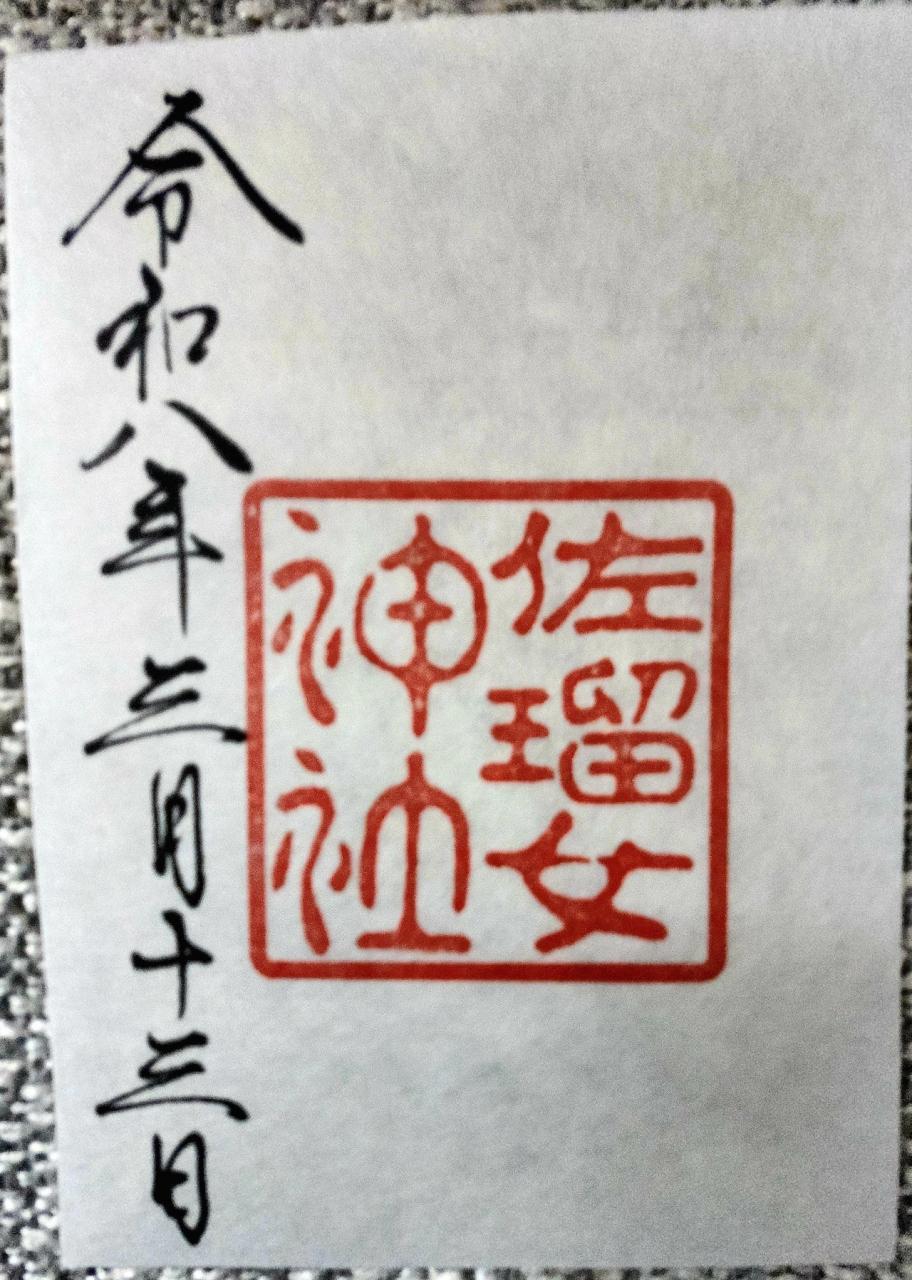 佐瑠女
神社
令和八年三月十三日